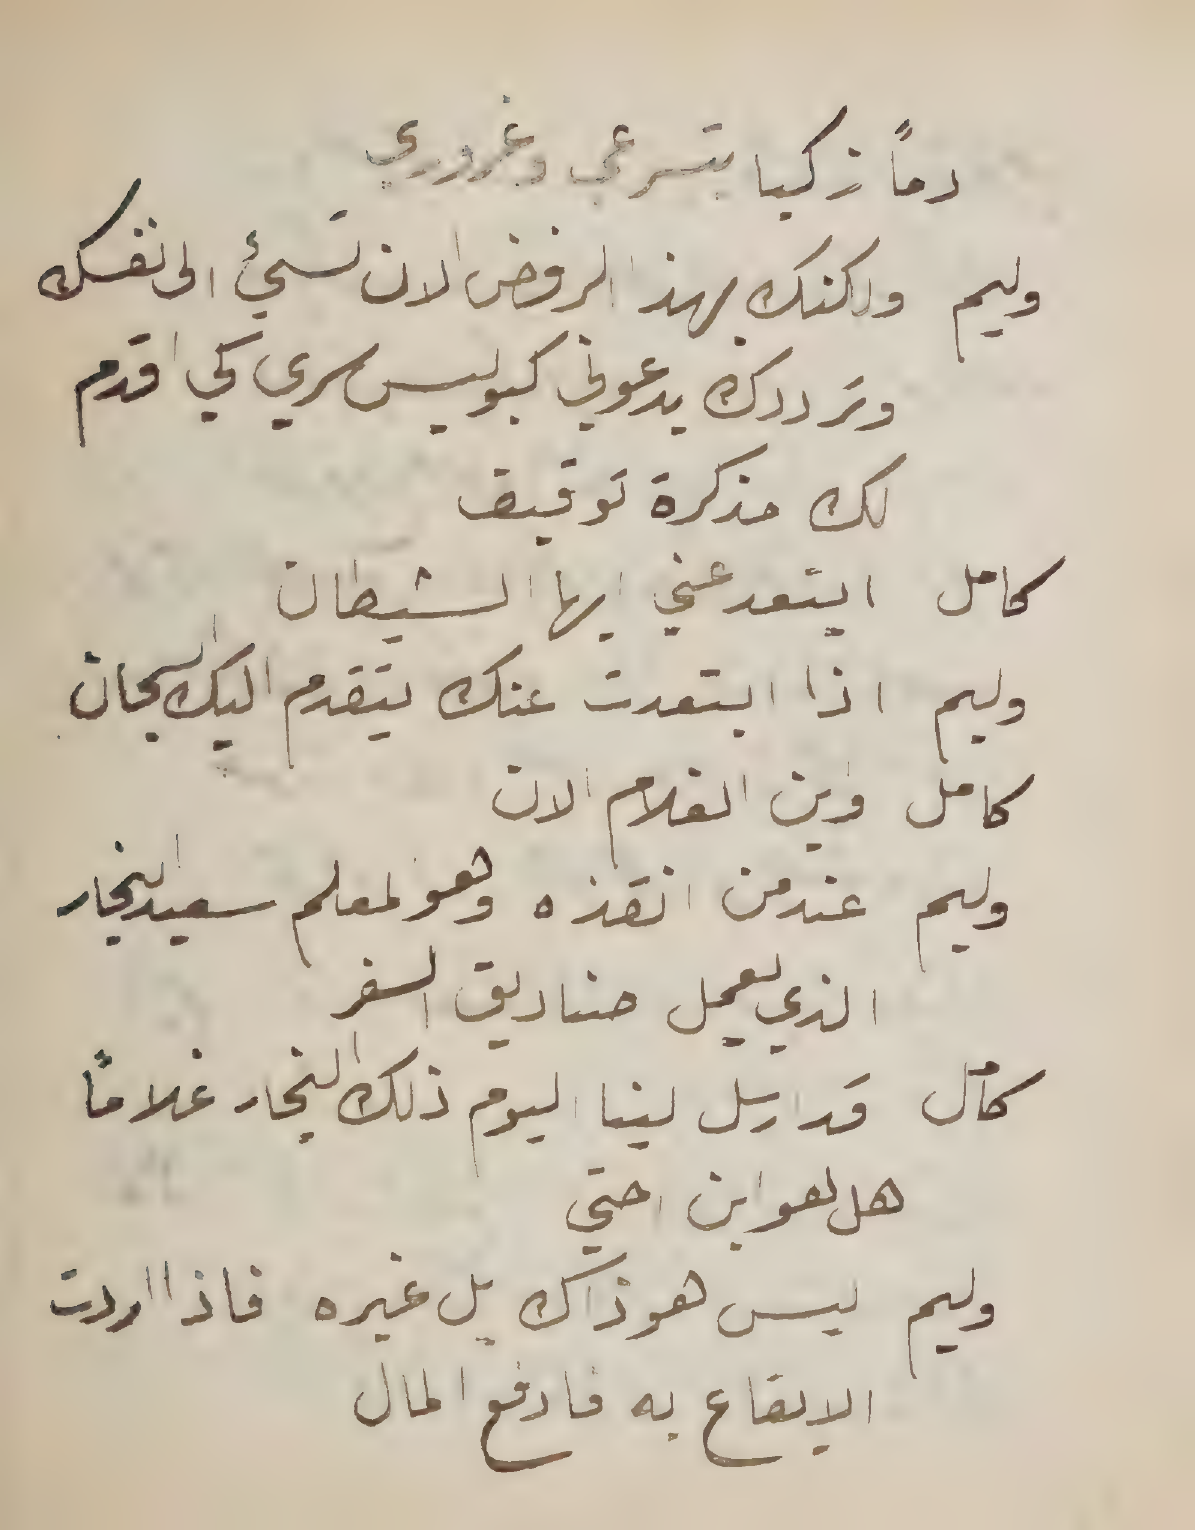 دماً زكيا بتسرعي وغروري
وليم ولكنك بهذا الرفض الان تسيئ الى نفسك
وترددك يدعوني كبوليس سري كي اقدم
لك مذكرة توقيف
كامل ابتعد عني ايها الشيطان
وليم اذا ابتعدت عنك يتقدم اليك السجان
كامل واين الغلام الان
وليم عند من انقذه وهو المعلم سعيد النجار
الذي يعمل صناديق السفر
كامل قد ارسل لينا اليوم ذلك النجار غلاماً
هل هو ابن اختي
وليم ليس هو ذاك بل غيره فاذا اردت
الايقاع به فادفع المال